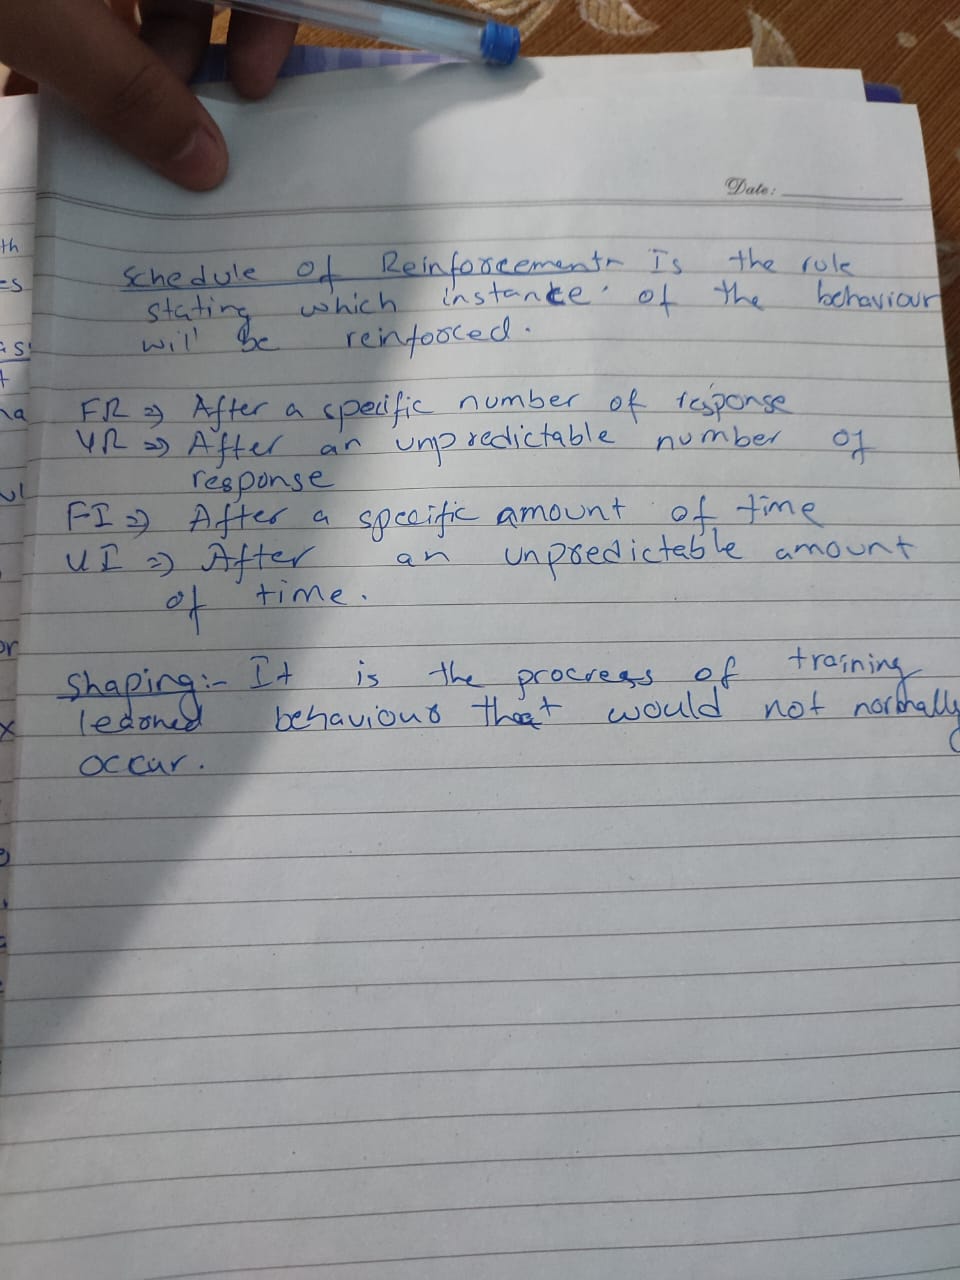 Date:
Schedule of Reinforcement Is the rule
stating which instance of the behaviour
will be reinforced.
FR => After a specific number of response
VR => After an unpredictable number of
response
FI => After a specific amount of time
VI => After an unpredictable amount
of time.
Shaping:- It is the procress of training
learned behaviour that would not normally
occur.
th
es
na
or
x